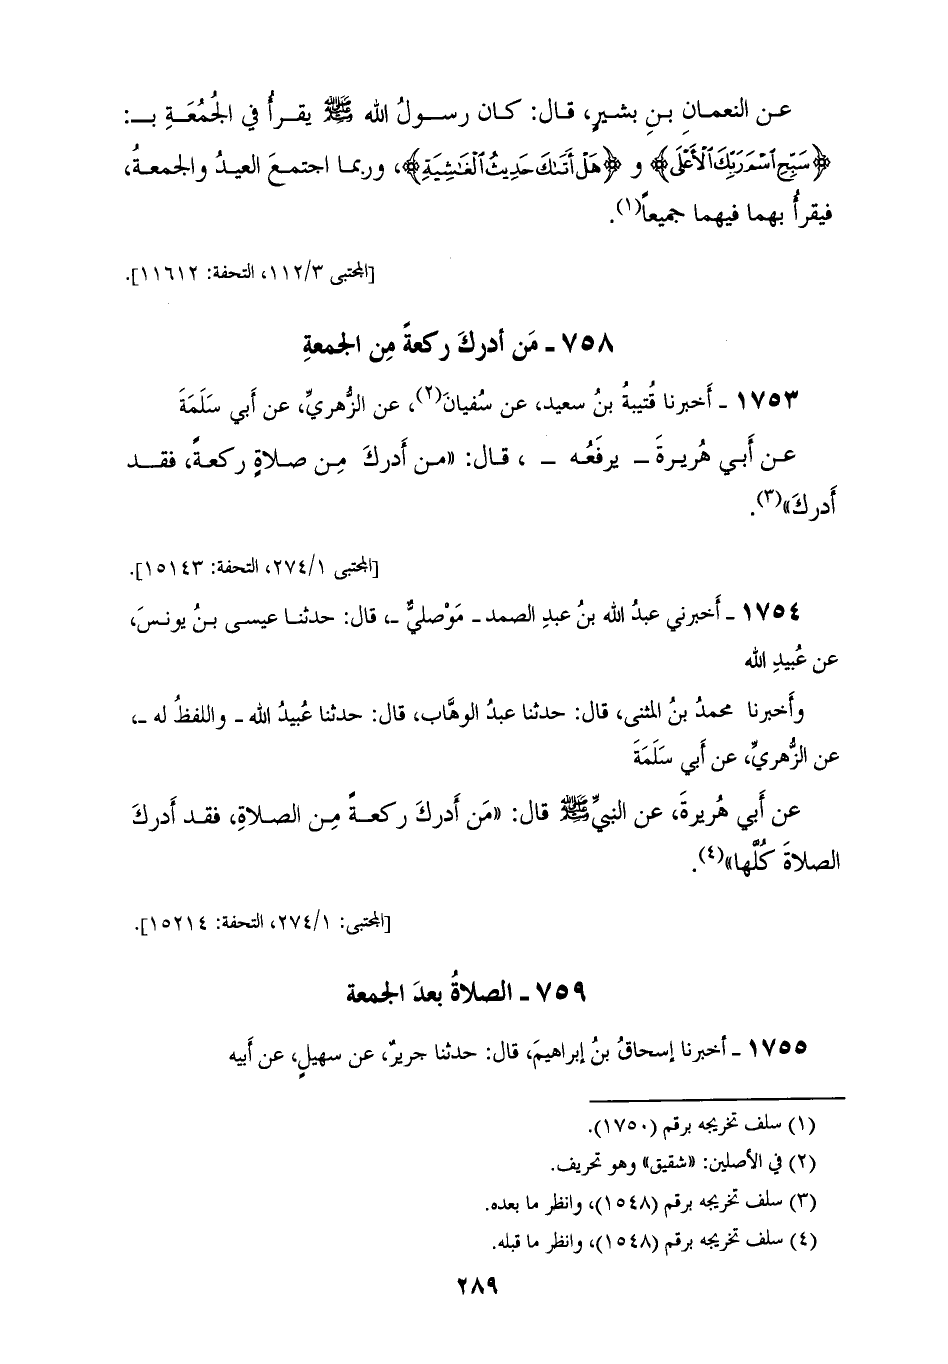 عن النعمانِ بنِ بشيرٍ، قال: كان رسولُ الله ﷺ يقرأُ في الجُمُعَةِ بـ:
﴿سَبِّحِ ٱسْمَ رَبِّكَ ٱلْأَعْلَى﴾ و ﴿هَلْ أَتَىٰكَ حَدِيثُ ٱلْغَٰشِيَةِ﴾، وربما اجتمعَ العيدُ والجمعةُ،
فيقرأُ بهما فيهما جميعاً(١).
[المجتبى ١١٢/٣، التحفة: ١١٦١٢].
٧٥٨ ـ مَن أدركَ ركعةً مِن الجمعةِ
١٧٥٣ ـ أَخبرنا قُتيبةُ بنُ سعيد، عن سُفيانَ(٢)، عن الزُّهريِّ، عن أبي سَلَمَةَ
عن أَبي هُريرةَ ـ يرفَعُه ـ ، قال: «من أَدركَ مِن صلاةٍ ركعةً، فقد
أَدركَ»(٣).
[المجتبى ٢٧٤/١، التحفة: ١٥١٤٣].
١٧٥٤ ـ أَخبرني عبدُ الله بنُ عبدِ الصمد ـ مَوْصليٌّ ـ، قال: حدثنا عيسى بنُ يونسَ،
عن عُبيدِ الله
وأَخبرنا محمدُ بنُ المثنى، قال: حدثنا عبدُ الوهَّاب، قال: حدثنا عُبيدُ الله ـ واللفظُ له ـ،
عن الزُّهريِّ، عن أَبي سَلَمَةَ
عن أَبي هُريرةَ، عن النبيِّ ﷺ قال: «مَن أَدركَ ركعةً مِن الصلاةِ، فقد أَدركَ
الصلاةَ كُلَّها»(٤).
[المجتبى: ٢٧٤/١، التحفة: ١٥٢١٤].
٧٥٩ ـ الصلاةُ بعدَ الجمعة
١٧٥٥ ـ أخبرنا إسحاقُ بنُ إبراهيمَ، قال: حدثنا جريرٌ، عن سهيلٍ، عن أَبيه
(١) سلف تخريجه برقم (١٧٥٠).
(٢) في الأصلين: «شقيق» وهو تحريف.
(٣) سلف تخريجه برقم (١٥٤٨)، وانظر ما بعده.
(٤) سلف تخريجه برقم (١٥٤٨)، وانظر ما قبله.
٢٨٩